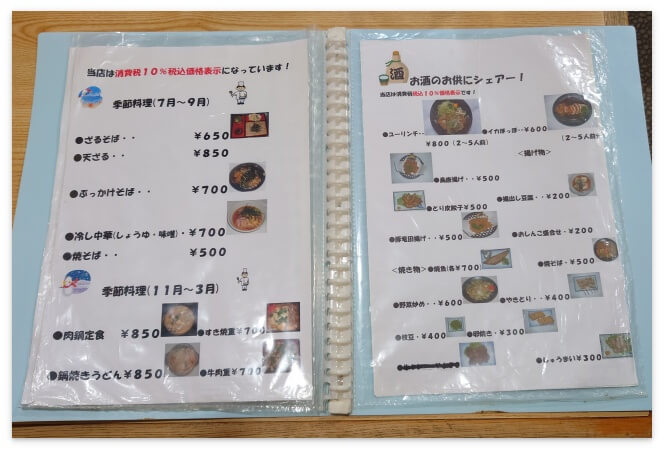 当店は消費税10%税込価格表示になっています!
季節料理(7月~9月)
●ざるそば・・ ¥650
●天ざる・・ ¥850
●ぶっかけそば・・ ¥700
●冷し中華(しょうゆ・味噌)・¥700
●焼そば・・ ¥500
季節料理(11月~3月)
●肉鍋定食 ¥850 ●すき焼重¥700
●鍋焼きうどん¥850 ●牛肉重¥700
酒
お酒のお供にシェアー!
当店は消費税税込価格表示です!
●ユーリンチ・・ ¥800(2~5人前)
●イカぽっぽ・・¥600 (2~5人前)
<揚げ物>
●鳥唐揚げ・・¥500
●とり皮餃子¥500 ●揚出し豆腐・・¥200
●豚竜田揚げ・・¥500 ●おしんこ盛合せ・¥200
<焼き物>●焼魚(各¥700 ●焼そば・・¥500
●野菜炒め・・¥600 ●やきとり・・¥400
●枝豆・・¥400 ●卵焼き・¥300
●しゅうまい¥300